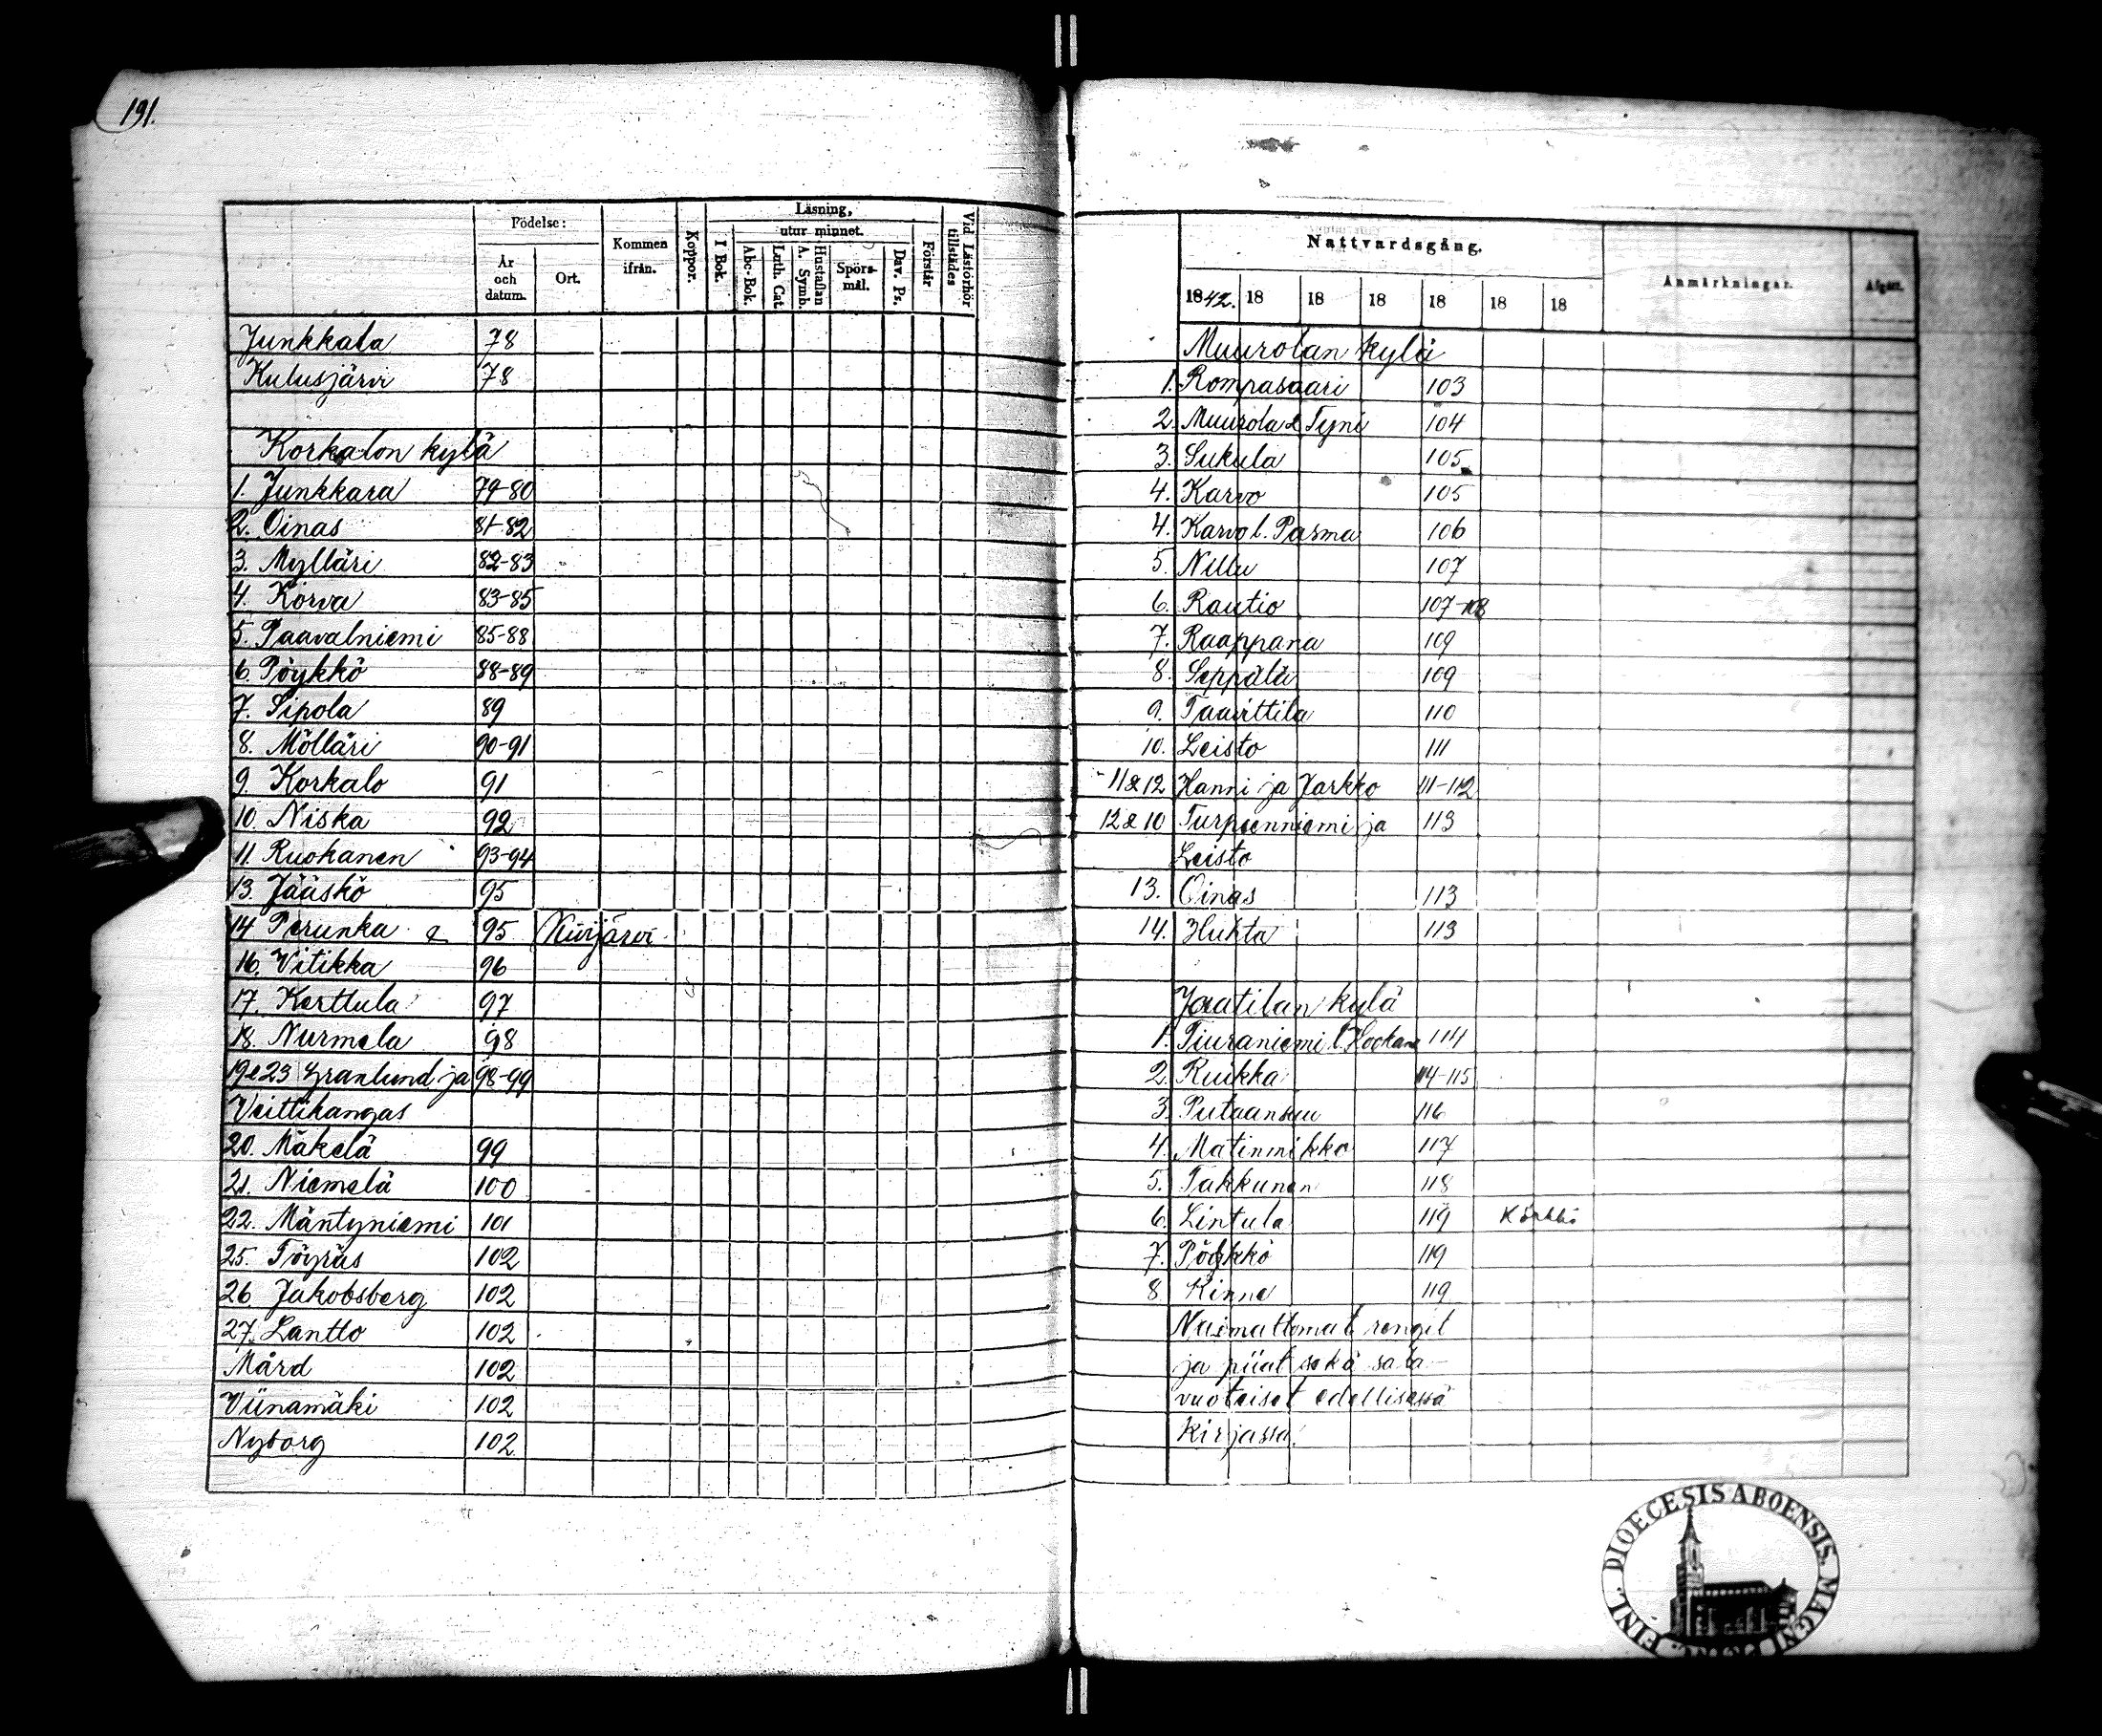 191.
Födelse:
År och datum.
Ort.
Kommen ifrån.
Koppor.
Läsning,
utur minnet.
I Bok.
Abc-Bok.
Luth. Cat.
Hustaflan A. Symb.
Spörsmål.
Dav. Ps.
Förstår
Vid Läsförhör tillstädes
Junkkala 78
Kulusjärvi 78
Korkalon kylä
1. Junkkara 79-80
2. Oinas 81-82
3. Mylläri 82-83
4. Korva 83-85
5. Paavalniemi 85-88
6. Pöykkö 88-89
7. Sipola 89
8. Mölläri 90-91
9. Korkalo 91
10. Niska 92
11. Ruokanen 93-94
13. Jääskö 95
14 Perunka & 95 Kivijärvi
16. Vitikka 96
17. Kerttula 97
18. Nurmela 98
19&23 Granlund ja 98-99
Veittikangas
20. Mäkelä 99
21. Niemelä 100
22. Mäntyniemi 101
25. Töyräs 102
26. Jakobsberg 102
27. Lantto 102
Mård 102
Viinamäki 102
Nyborg 102
Nattvardsgång.
Anmärkningar.
Afgån.
1842. 18 18 18 18 18 18
Muurolan kylä
1. Rompasaari 103
2. Muurola & Tyni 104
3. Sukula 105
4. Karvo 105
4. Karvo l. Pasma 106
5. Nillu 107
6. Rautio 107-108
7. Raappana 109
8. Seppälä 109
9. Taavittila 110
10. Leisto 111
11&12 Hanni ja Jarkko 111-112
12&10 Turpeenniemi ja 113
Leisto
13. Oinas 113
14. Huhta 113
Jaatilan kylä
1. Tiuraniemi l. 114
2. Ruikka 114-115
3. Putaansuu 116
4. Matinmikko 117
5. Takkunen 118
6. Lintula 119 Körkkö
7. Pöykkö 119
8 Kinne 119
Naimattomat rengit
ja piiat sekä sata-
vuoteiset edellisessä
kirjassa.
FINL. DIOECESIS ABOENSIS. MAGNI